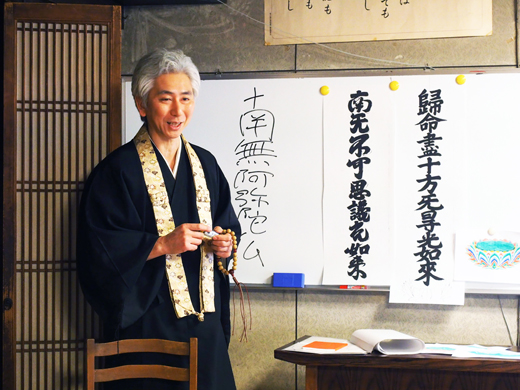 歸命盡十方无㝵光如來
南无不可思議光如來
十南無阿弥陀仏